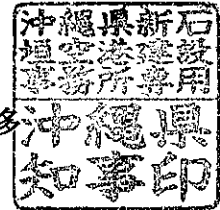 沖縄県新石
垣空港建設
事務所専用
沖縄県
知事印